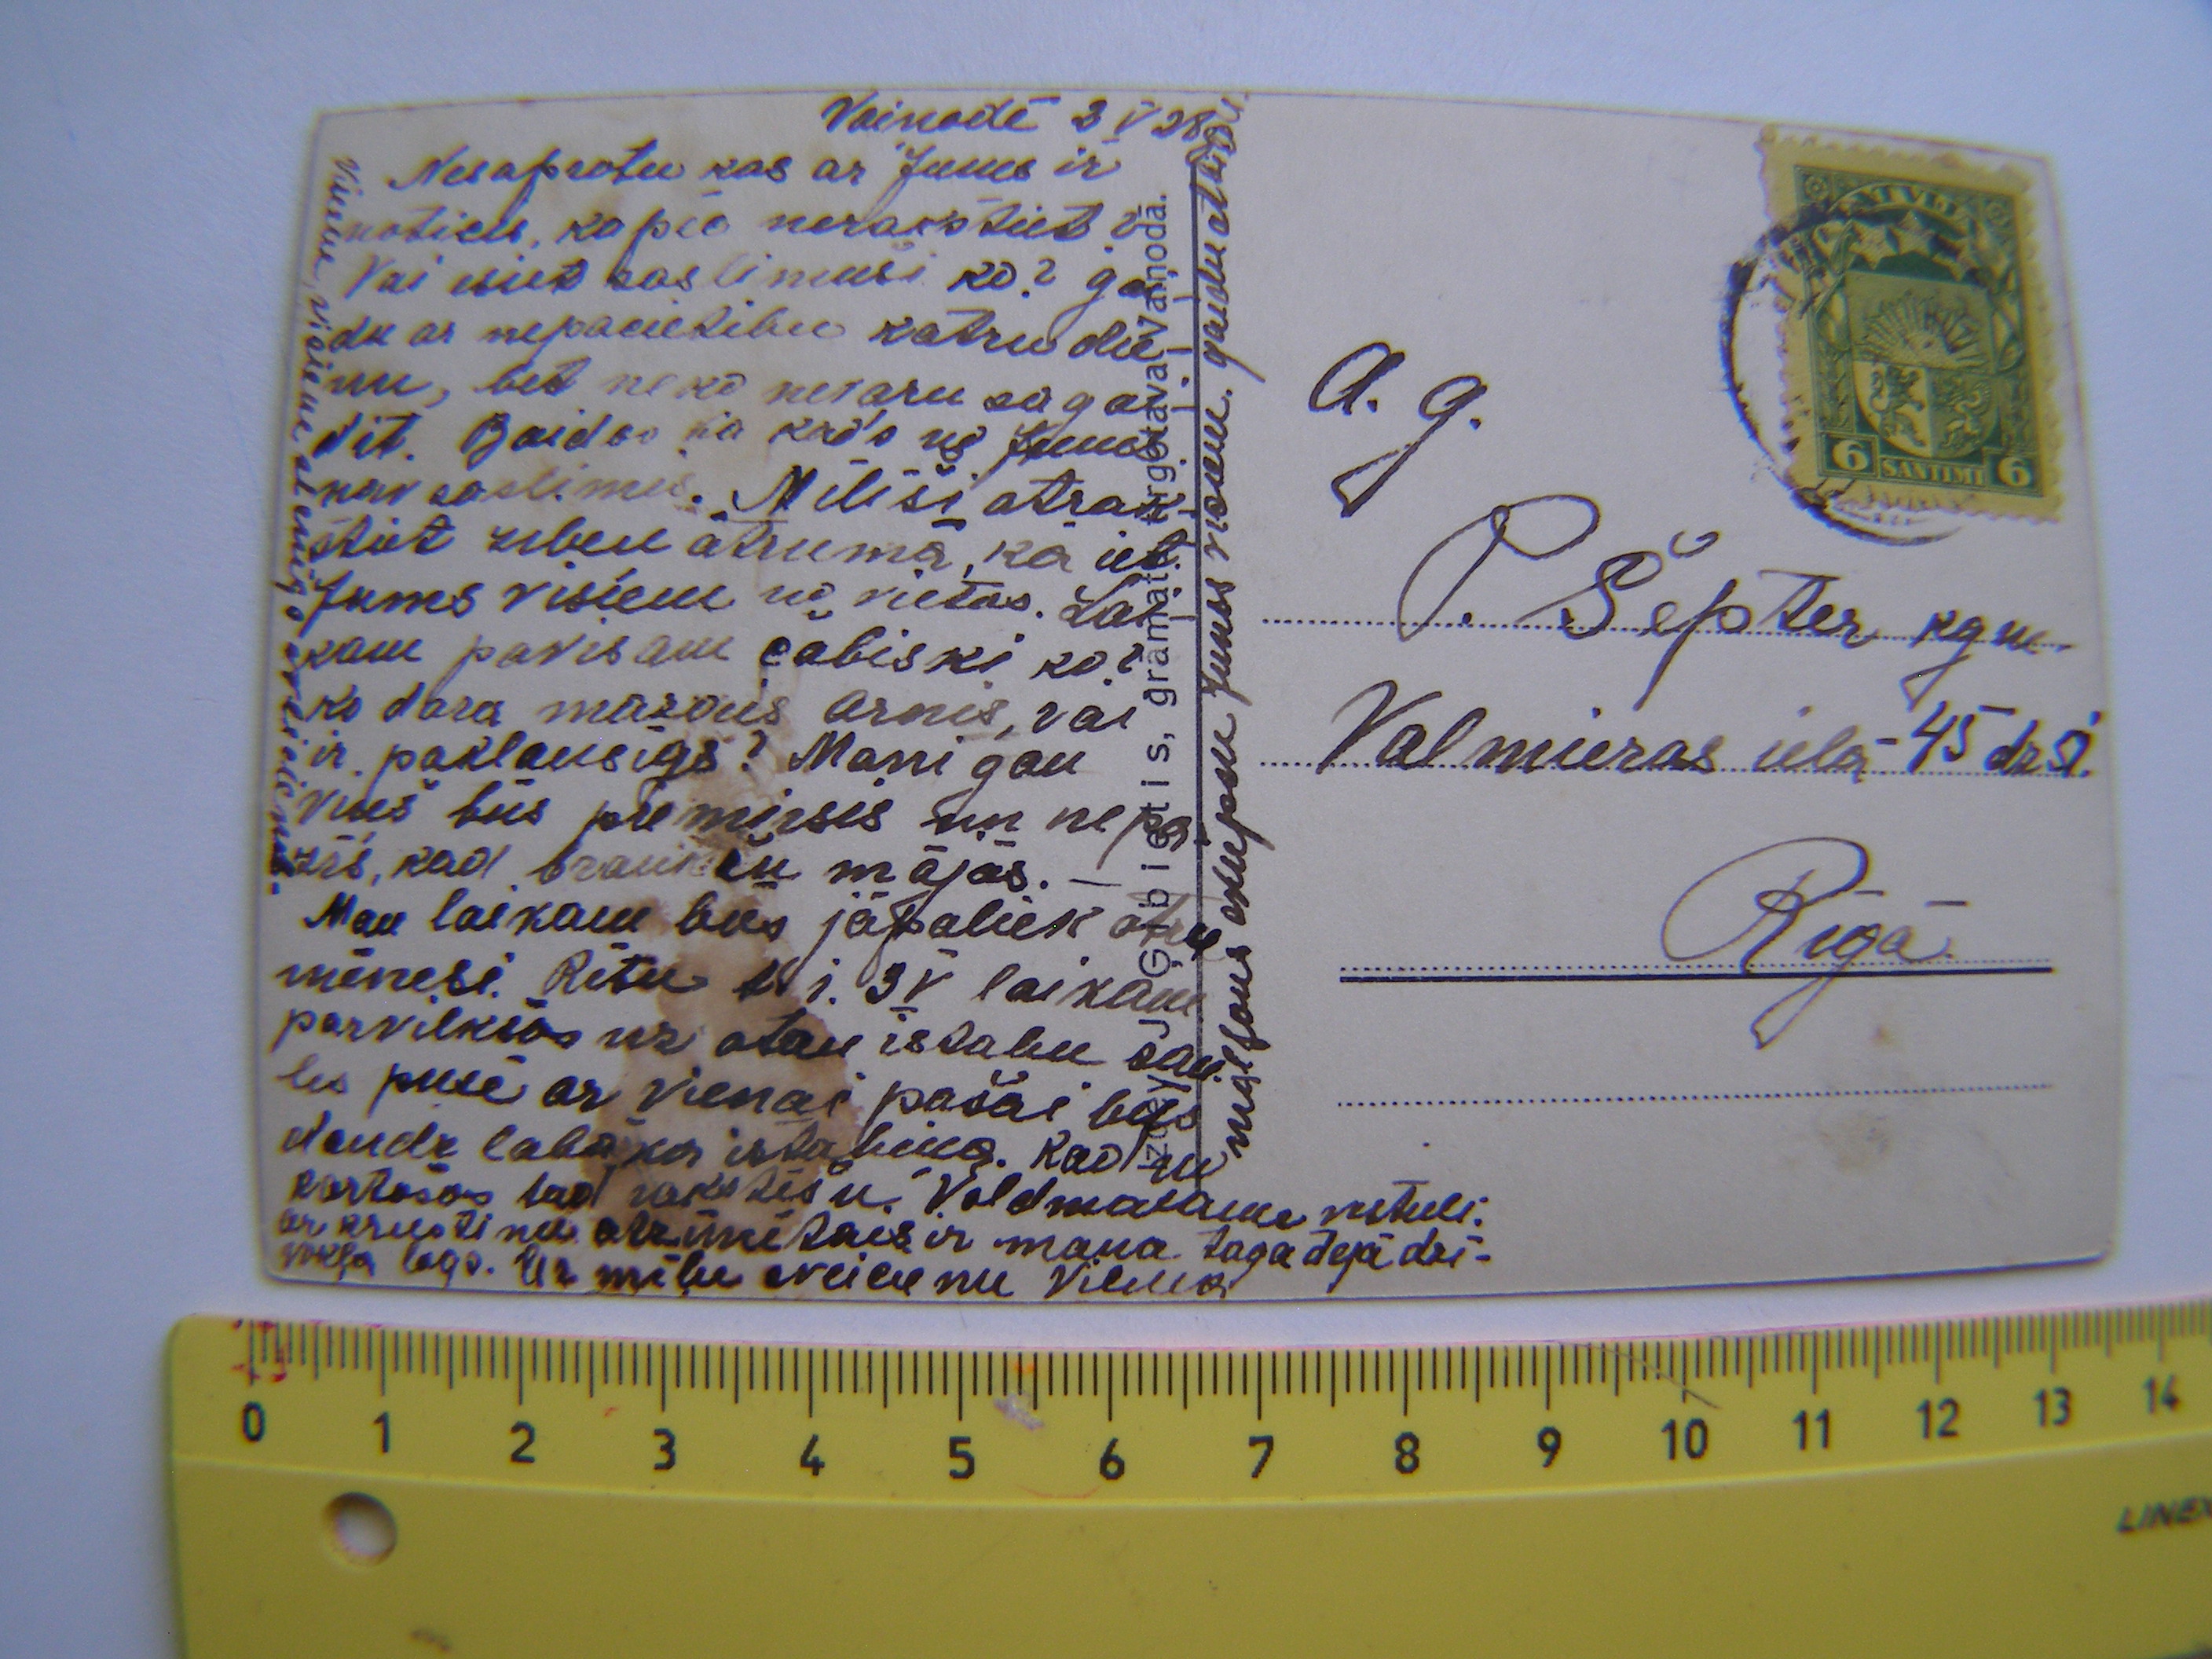 Vaiņodē 2 V 28
Nesaprotu kas ar Jums ir
noticis, kapēc nerakstiet?
Vai esiet saslimuši ko? gai-
du ar nepacietību katru die-
nu, bet neko nevaru sagai-
dīt. Baidos ka kāds no Jums
nav saslimis. Mīlīši atrak-
stiet zibeņ ātrumā, kā iet
Jums visiem no vietas. Lai-
kam pavisam čābiski ko?
Ko dara mazais Arnis, vai
ir paklausīgs? Mani gau
viņš būs piemirsis un nepa-
zīs, kad braukšu mājās. —
Man laikam būs jāpaliek otru
mēnesi. Rītu t. i. 3 V laikam
pārvilkšos uz otau istabu sau-
les pusē ar vienai pašai būs
daudz labāka istabiņa. Kad
pārtašos tad rakstīšu. Voldmaram
ar krustiņu atzīmētais ir mana tagadējā dzī-
vokļa logs. Uz mīļu sveicienu Vilma
Jums visiem. gaidu
visiem
Izdev. J. G bietis, grāmatu tirgotava Vaiņodā.
LATVIJA
6 SANTIMI 6
A. g.
P. Šepter kgm.
Valmieras ielā 45 dz.
Rīgā.
0 1 2 3 4 5 6 7 8 9 10 11 12 13 14
LINEX